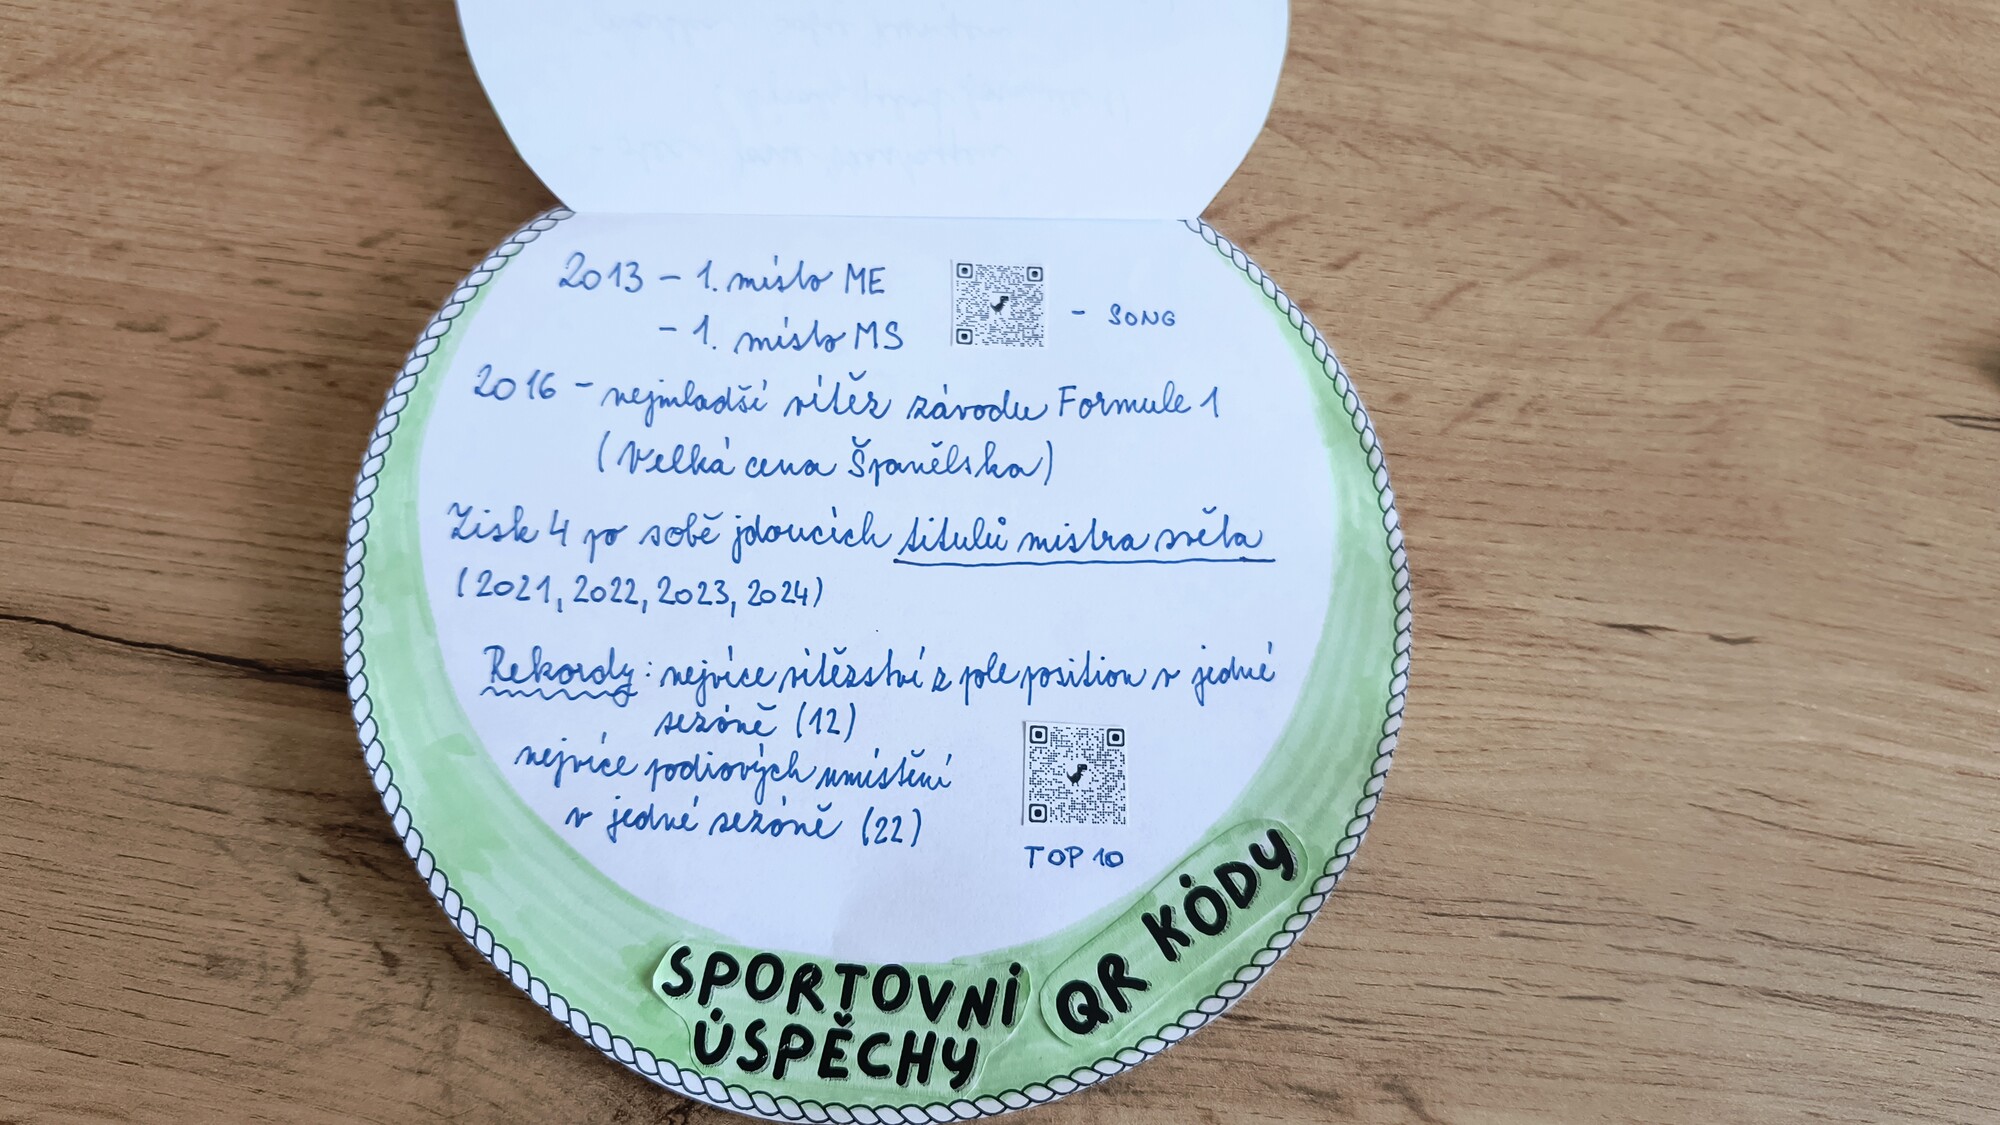 2013 - 1. místo ME
- 1. místo MS
- SONG
2016 - nejmladší vítěz závodu Formule 1
(Velká cena Španělska)
Zisk 4 po sobě jdoucích titulů mistra světa
(2021, 2022, 2023, 2024)
Rekordy: nejvíce vítězství z pole position v jedné
sezóně (12)
nejvíce podiových umístění
v jedné sezóně (22)
TOP 10
SPORTOVNÍ
ÚSPĚCHY
QR KÓDY